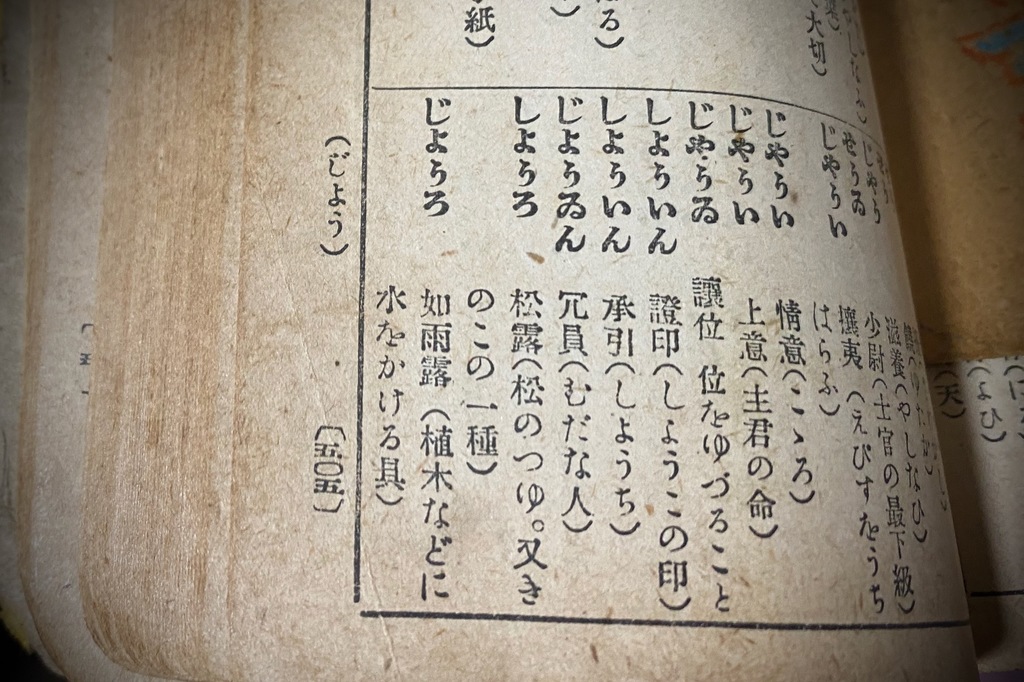 大切)
る)
紙)
せうゐ
じやうい
じやうい
じやうい
じやうゐ
しよういん
しよういん
じようゐん
しようろ
じようろ
滋養(やしなひ)
少尉(士官の最下級)
攘夷(えびすをうち
はらふ)
情意(こゝろ)
上意(主君の命)
讓位 位をゆづること
證印(しようこの印)
承引(しようち)
冗員(むだな人)
松露(松のつゆ。又き
のこの一種)
如雨露(植木などに
水をかける具)
(じよう)
〔五〇五〕
天)
よひ)